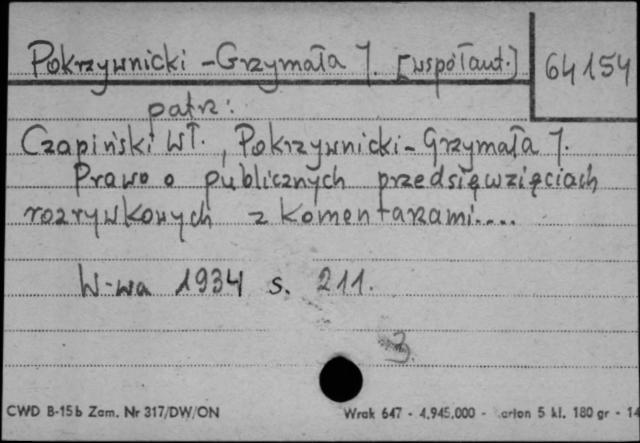 Pokrzywnicki-Grzymała J. [współaut.] 64154
patrz:
Czapiński Wł., Pokrzywnicki-Grzymała J.
Prawo o publicznych przedsięwzięciach
rozrywkowych z komentarzami....
W-wa 1934 s. 211.
3
CWD B-15b Zam. Nr 317/DW/ON Wrak 647 - 4.945.000 - arton 5 kl. 180 gr - 14